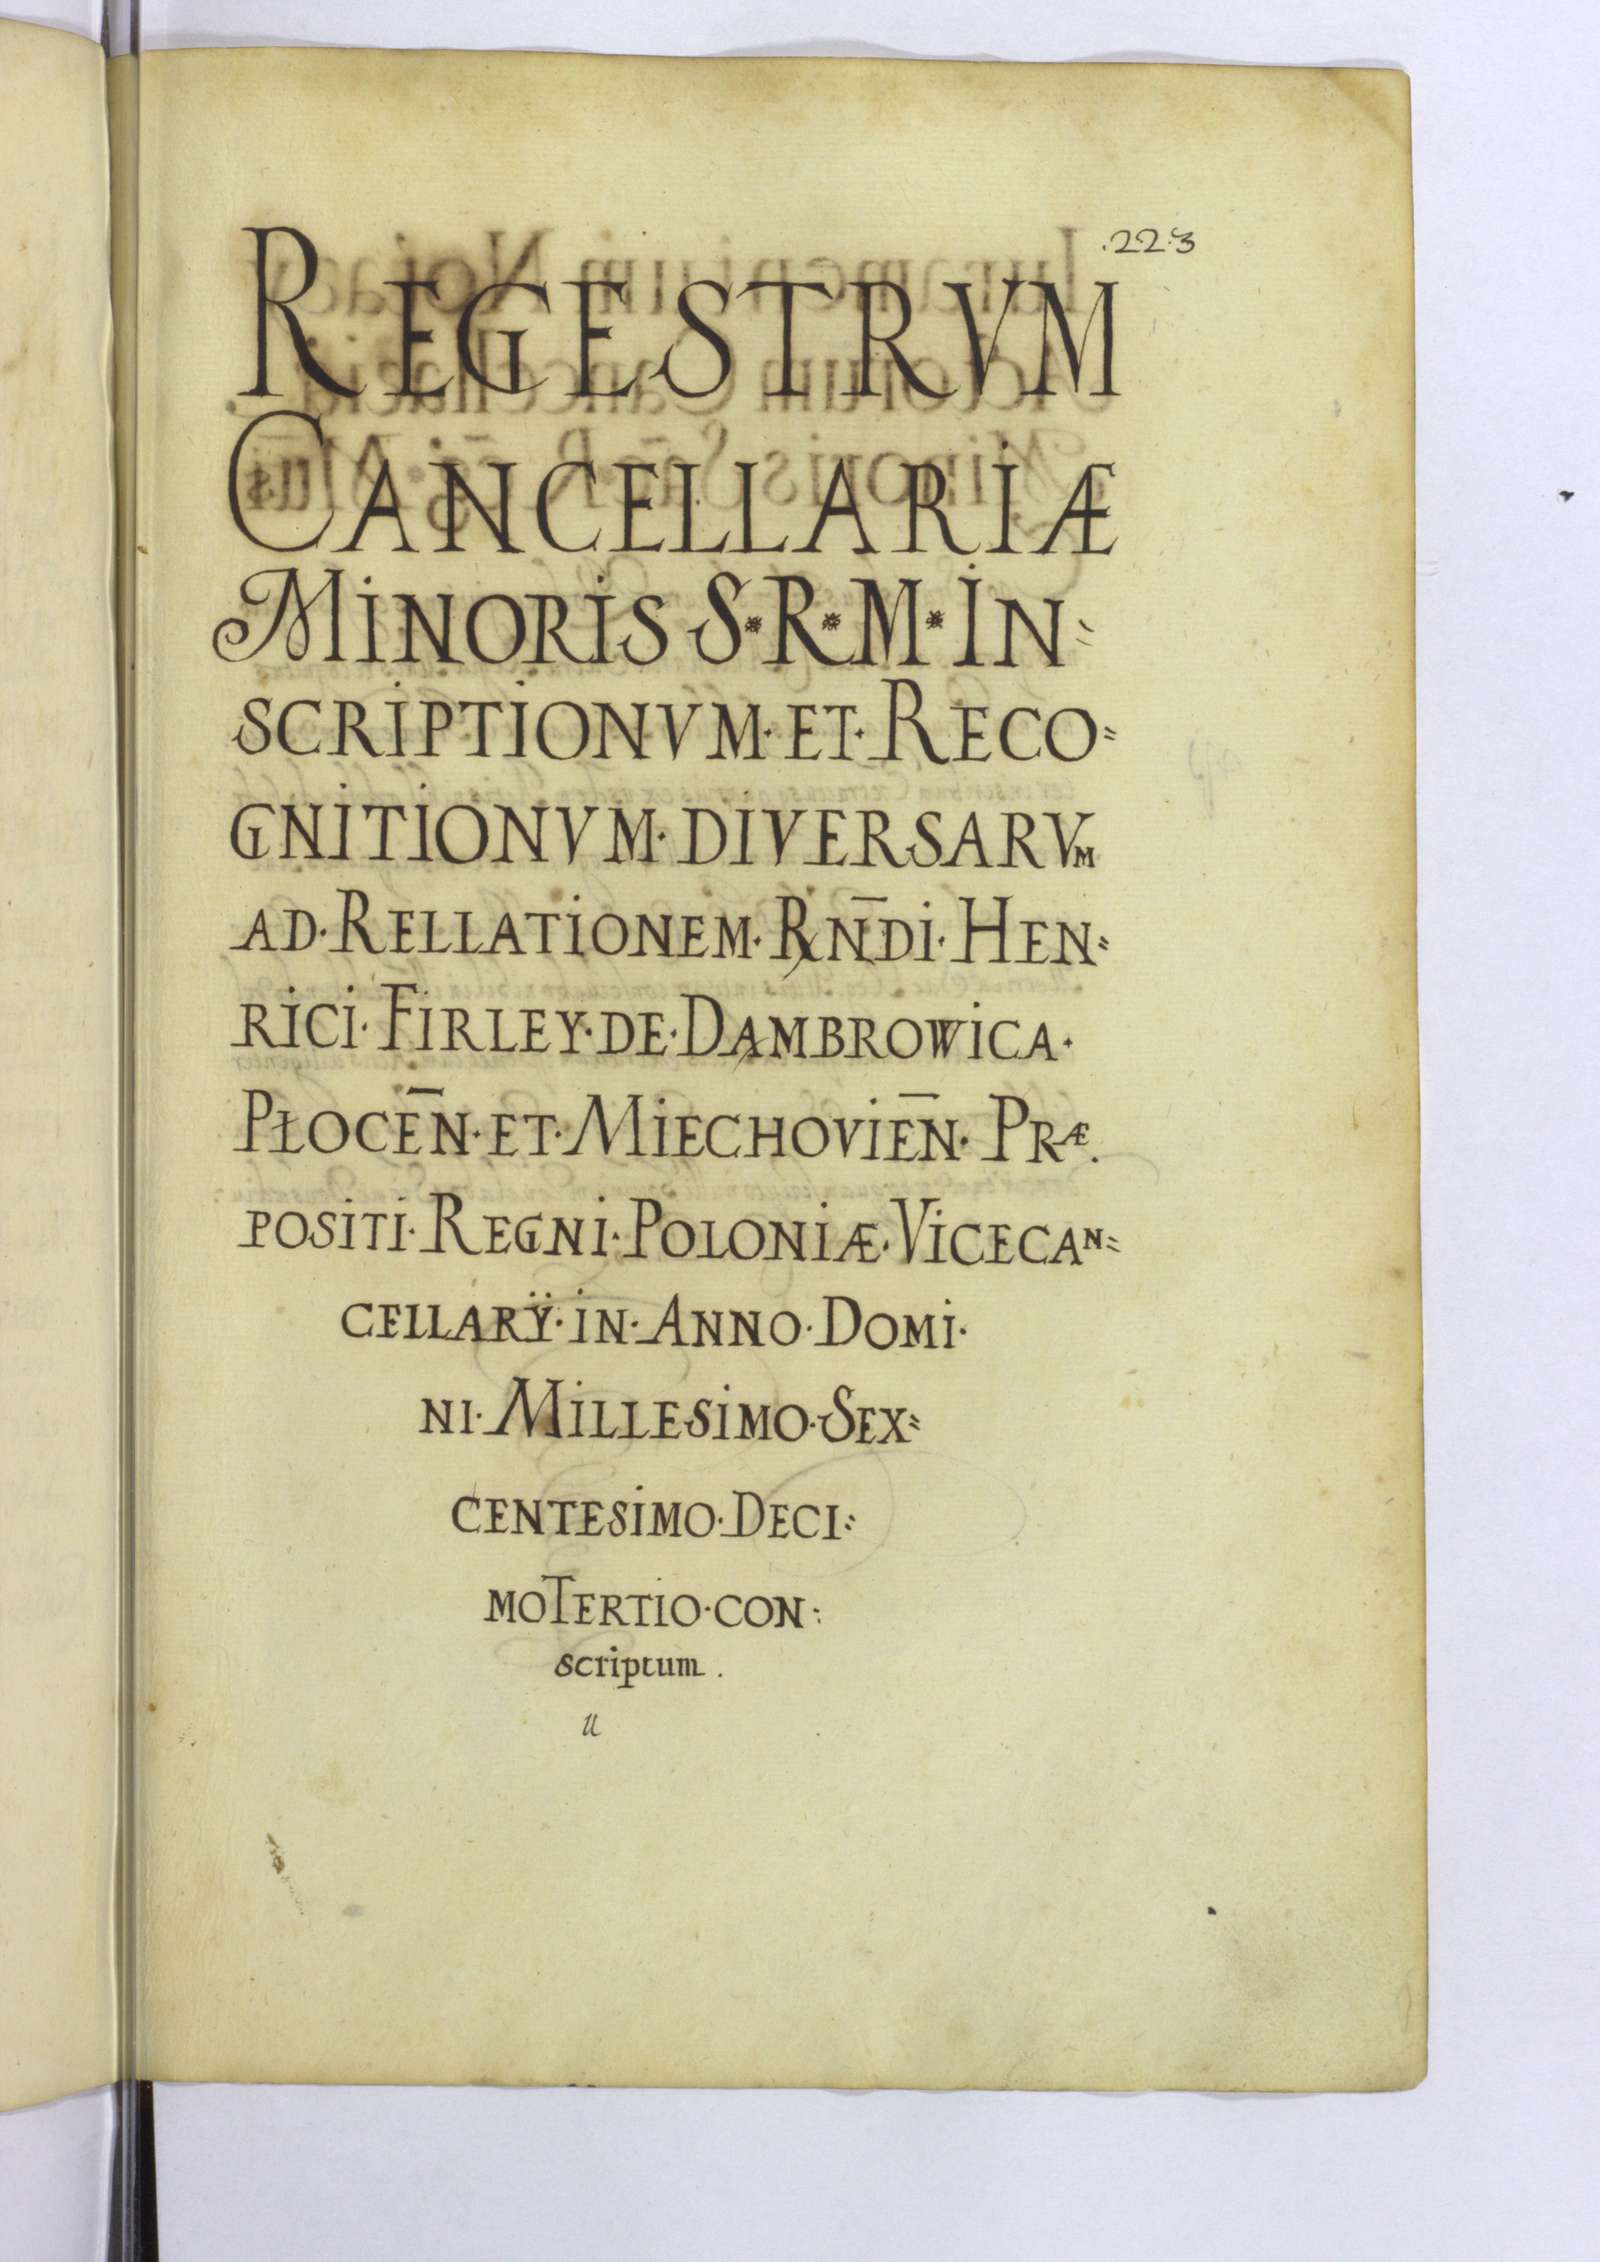 .22.3
REGESTRVM
CANCELLARIÆ
MINORIS S*R*M*IN=
SCRIPTIONVM·ET·RECO=
GNITIONVM·DIVERSARVM
AD·RELLATIONEM·RN̄DI·HEN=
RICI·FIRLEY·DE·DAMBROWICA·
PŁOCEN̄·ET·MIECHOVIEN̄·PRÆ.
POSITI·REGNI·POLONIÆ·VICECAN=
CELLARŸ·IN·ANNO·DOMI·
NI·MILLESIMO·SEX=
CENTESIMO·DECI=
MOTERTIO·CON:
scriptum.